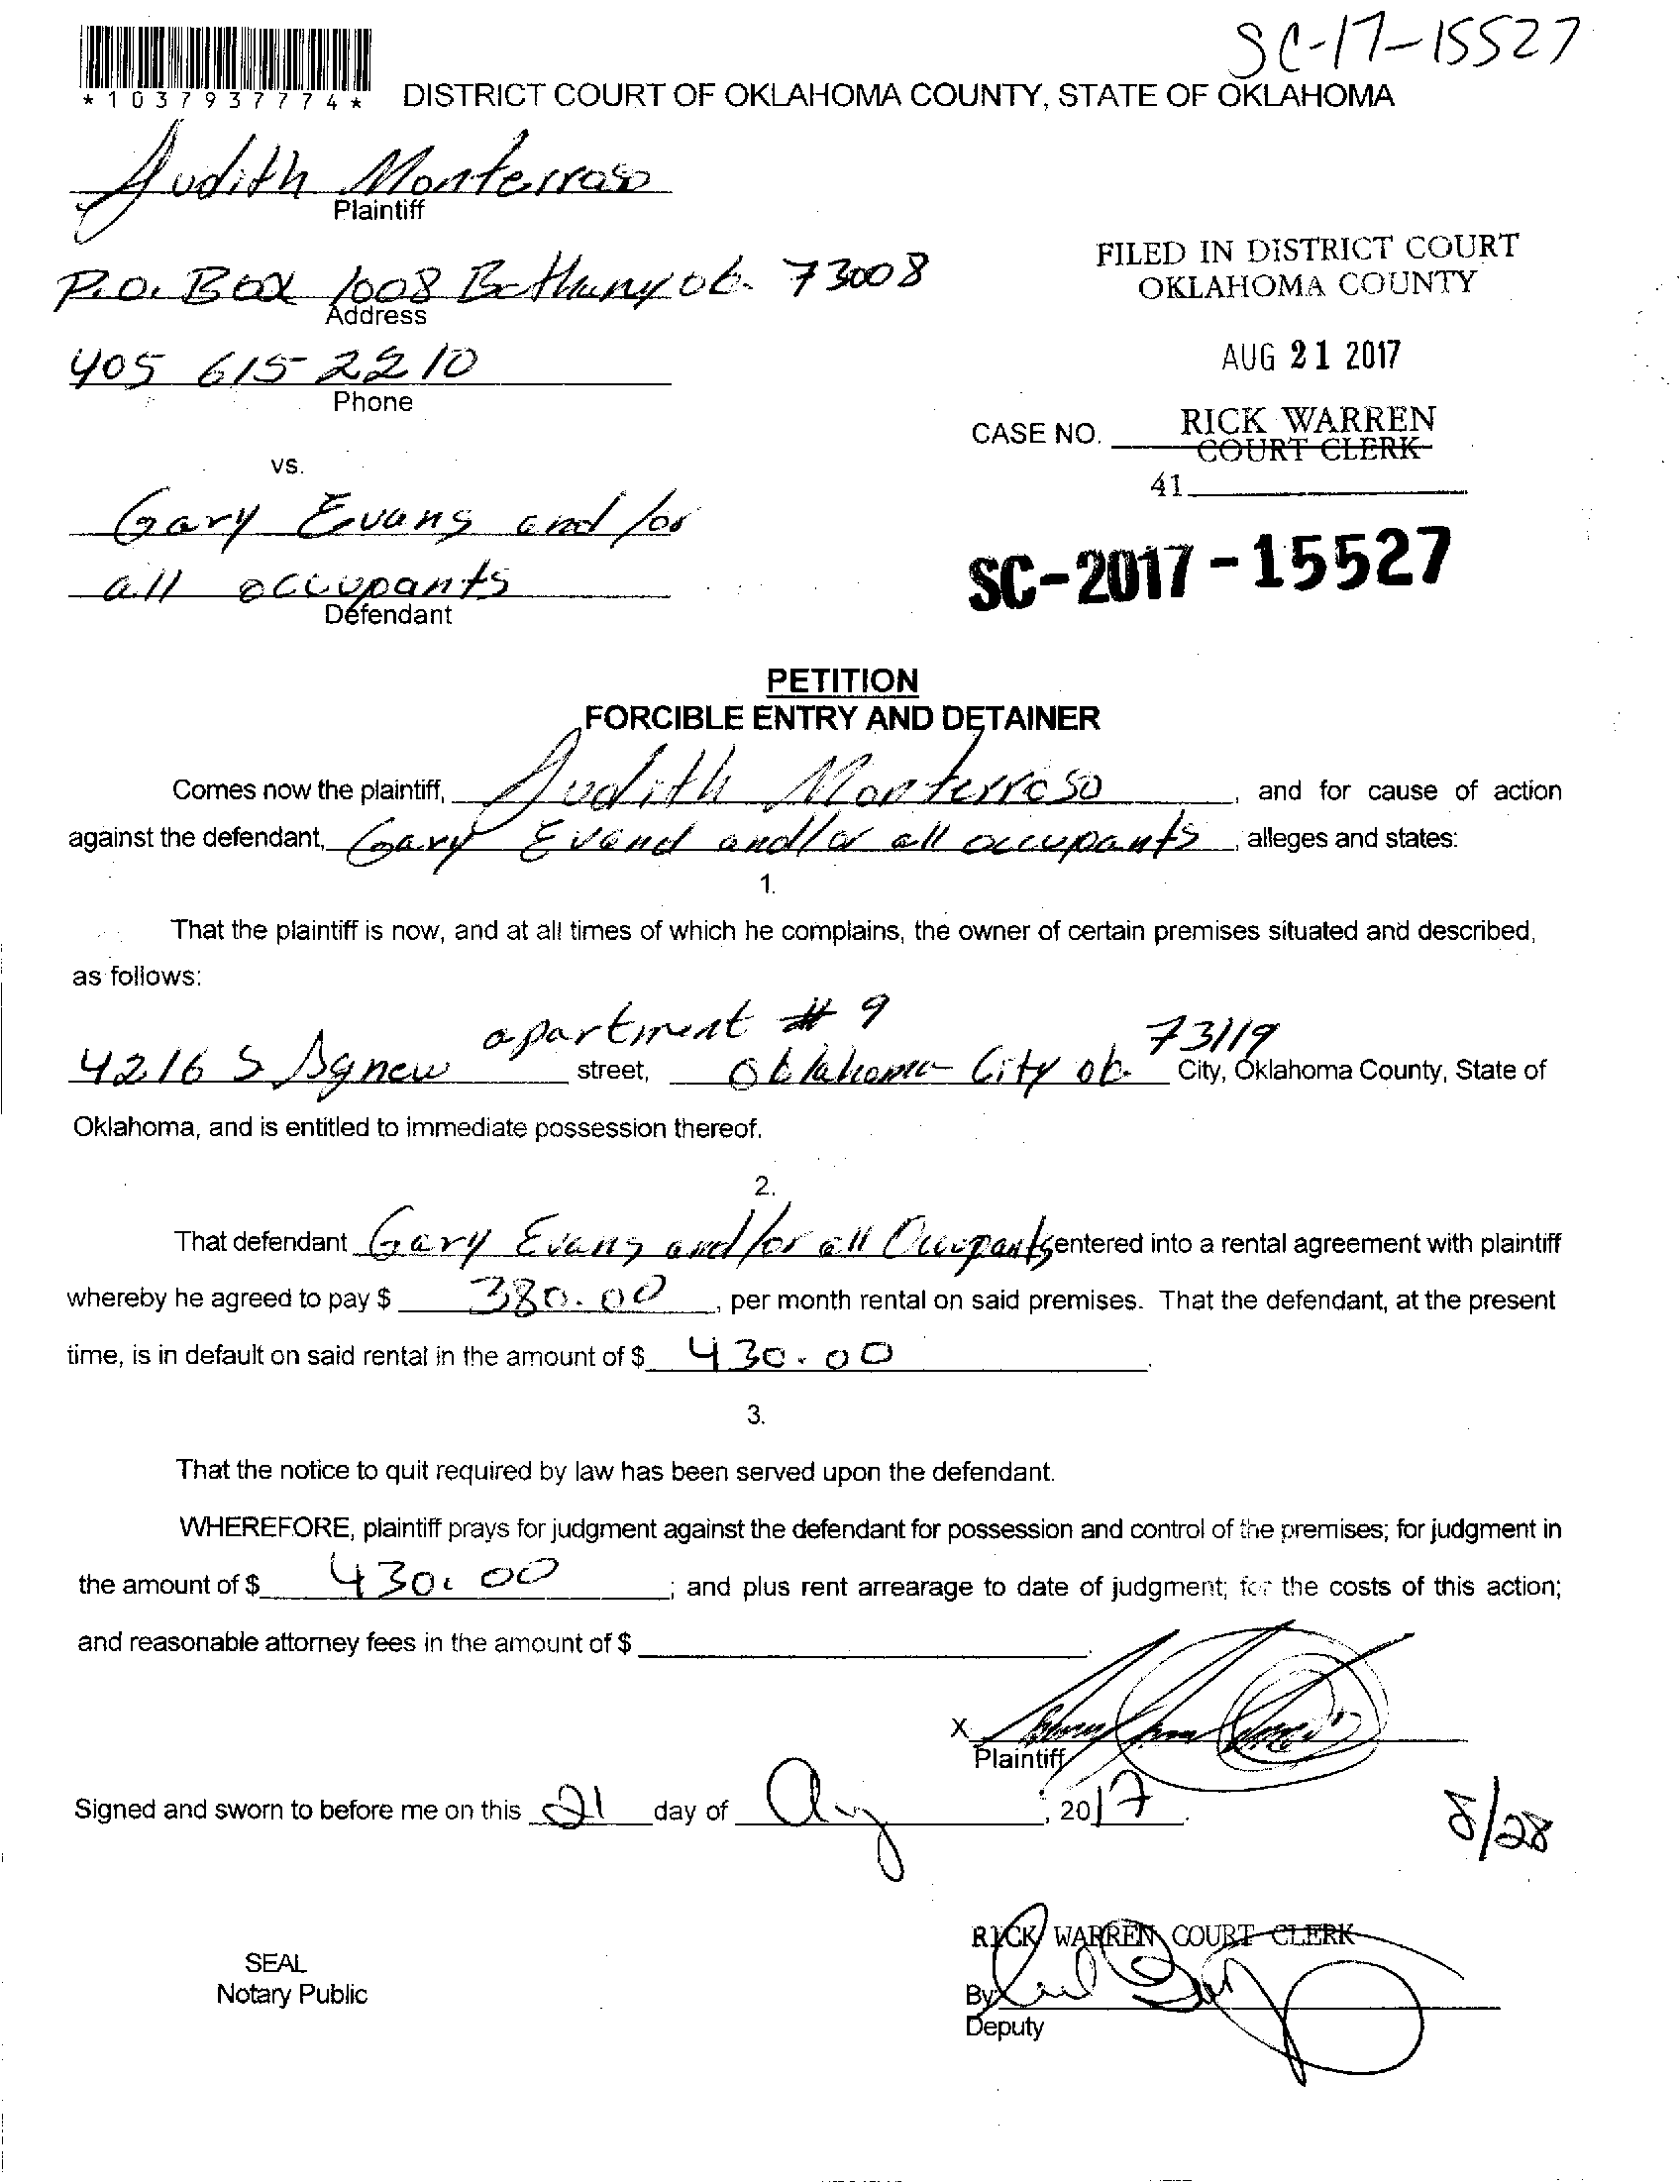 SC-17-15527
*1037937774*
DISTRICT COURT OF OKLAHOMA COUNTY, STATE OF OKLAHOMA
Judith Monterraso
Plaintiff
P.O. Box 1008 Bethany ok. 73008
Address
FILED IN DISTRICT COURT
OKLAHOMA COUNTY
405 615 2210
Phone
AUG 21 2017
CASE NO.
RICK WARREN
COURT CLERK
vs.
41
Gary Evans and/or
all occupants
Defendant
SC-2017-15527
PETITION
FORCIBLE ENTRY AND DETAINER
Comes now the plaintiff, Judith Monterroso, and for cause of action
against the defendant, Gary Evand and/or all occupants, alleges and states:
1.
That the plaintiff is now, and at all times of which he complains, the owner of certain premises situated and described,
as follows:
apartment # 9 73119
4216 S Agnew street, Oklahoma City ok. City, Oklahoma County, State of
Oklahoma, and is entitled to immediate possession thereof.
2.
That defendant Gary Evans and/or all Occupants entered into a rental agreement with plaintiff
whereby he agreed to pay $ 380.00, per month rental on said premises. That the defendant, at the present
time, is in default on said rental in the amount of $ 430.00.
3.
That the notice to quit required by law has been served upon the defendant.
WHEREFORE, plaintiff prays for judgment against the defendant for possession and control of the premises; for judgment in
the amount of $ 430.00; and plus rent arrearage to date of judgment; for the costs of this action;
and reasonable attorney fees in the amount of $
X
Plaintiff
Signed and sworn to before me on this 21 day of Aug, 2017.
8/28
RICK WARREN COURT CLERK
SEAL
Notary Public
By
Deputy